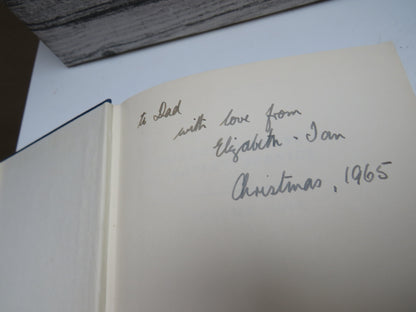 to Dad
with love from
Elizabeth - Ian
Christmas, 1965